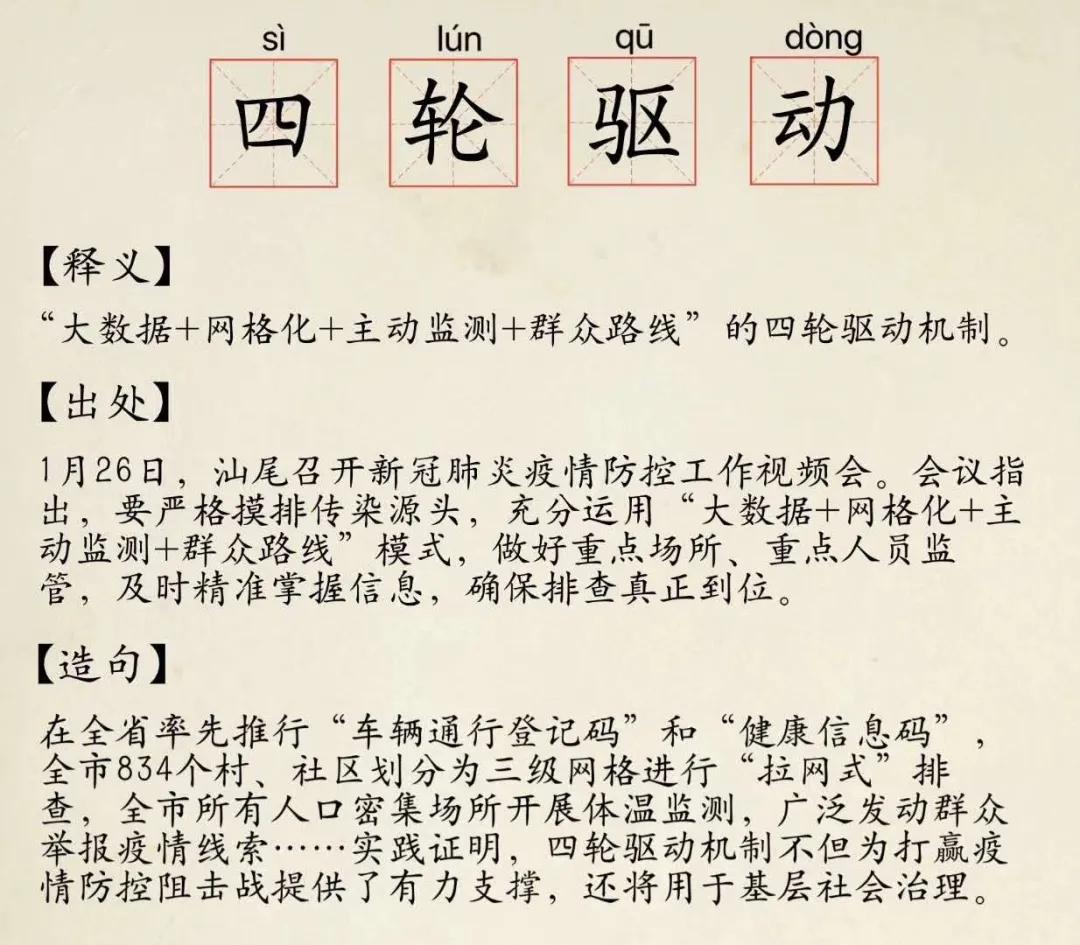 sì lún qū dòng
四轮驱动
【释义】
“大数据+网格化+主动监测+群众路线”的四轮驱动机制。
【出处】
1月26日，汕尾召开新冠肺炎疫情防控工作视频会。会议指
出，要严格摸排传染源头，充分运用“大数据+网格化+主
动监测+群众路线”模式，做好重点场所、重点人员监
管，及时精准掌握信息，确保排查真正到位。
【造句】
在全省率先推行“车辆通行登记码”和“健康信息码”，
全市834个村、社区划分为三级网格进行“拉网式”排
查，全市所有人口密集场所开展体温监测，广泛发动群众
举报疫情线索……实践证明，四轮驱动机制不但为打赢疫
情防控阻击战提供了有力支撑，还将用于基层社会治理。